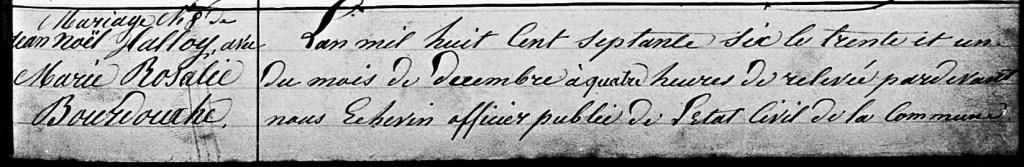 Mariage N° 8 de
Jean Noël Halloy, avec
Marie Rosalie
Bourdouxhe.
L'an mil huit Cent Septante Six le trente et un
du mois de decembre à quatre heures de relevée pardevant
nous Echevin officier public de l'Etat Civil de la Commune